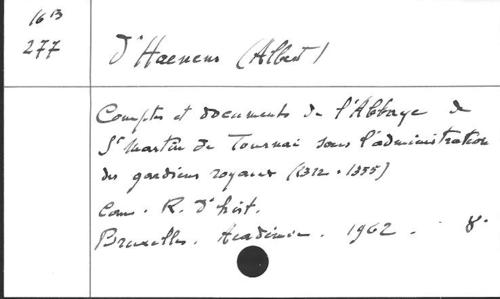 16 B
277
D'Haenens (Albert)
Comptes et documents de l'Abbaye de
St Martin de Tournai sous l'administration
des gardiens royaux (1312-1355)
Com. R. d'hist.
Bruxelles. Académie. 1962. 8°